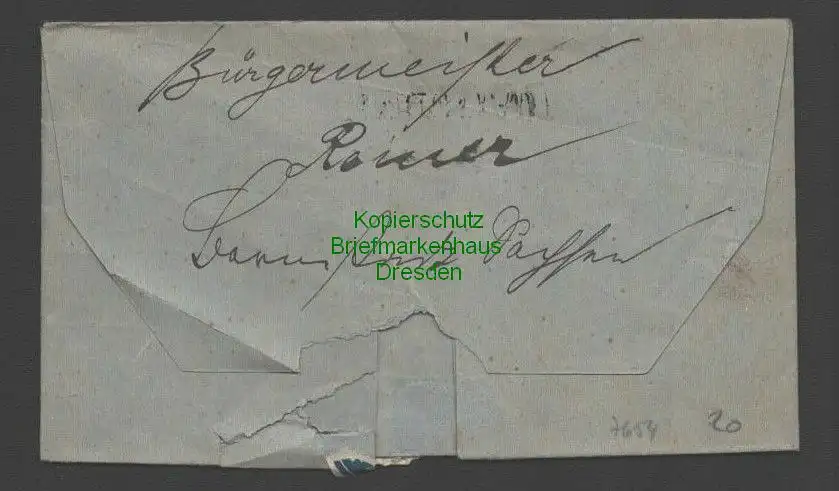 Bürgermeister
Römer
Sachsen
Kopierschutz
Briefmarkenhaus
Dresden
7654 20